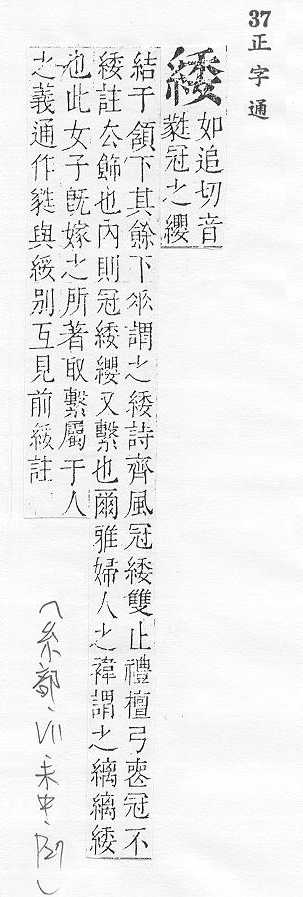 37正字通
緌
如追切音
蕤冠之纓
結于領下其餘下垂謂之緌詩齊風冠緌雙止禮檀弓喪冠不
緌註去飾也內則冠緌纓又繫也爾雅婦人之褘謂之縭縭緌
也此女子旣嫁之所著取繫屬于人
之義通作蕤與綏別互見前綏註
（糸部、VII、未中、